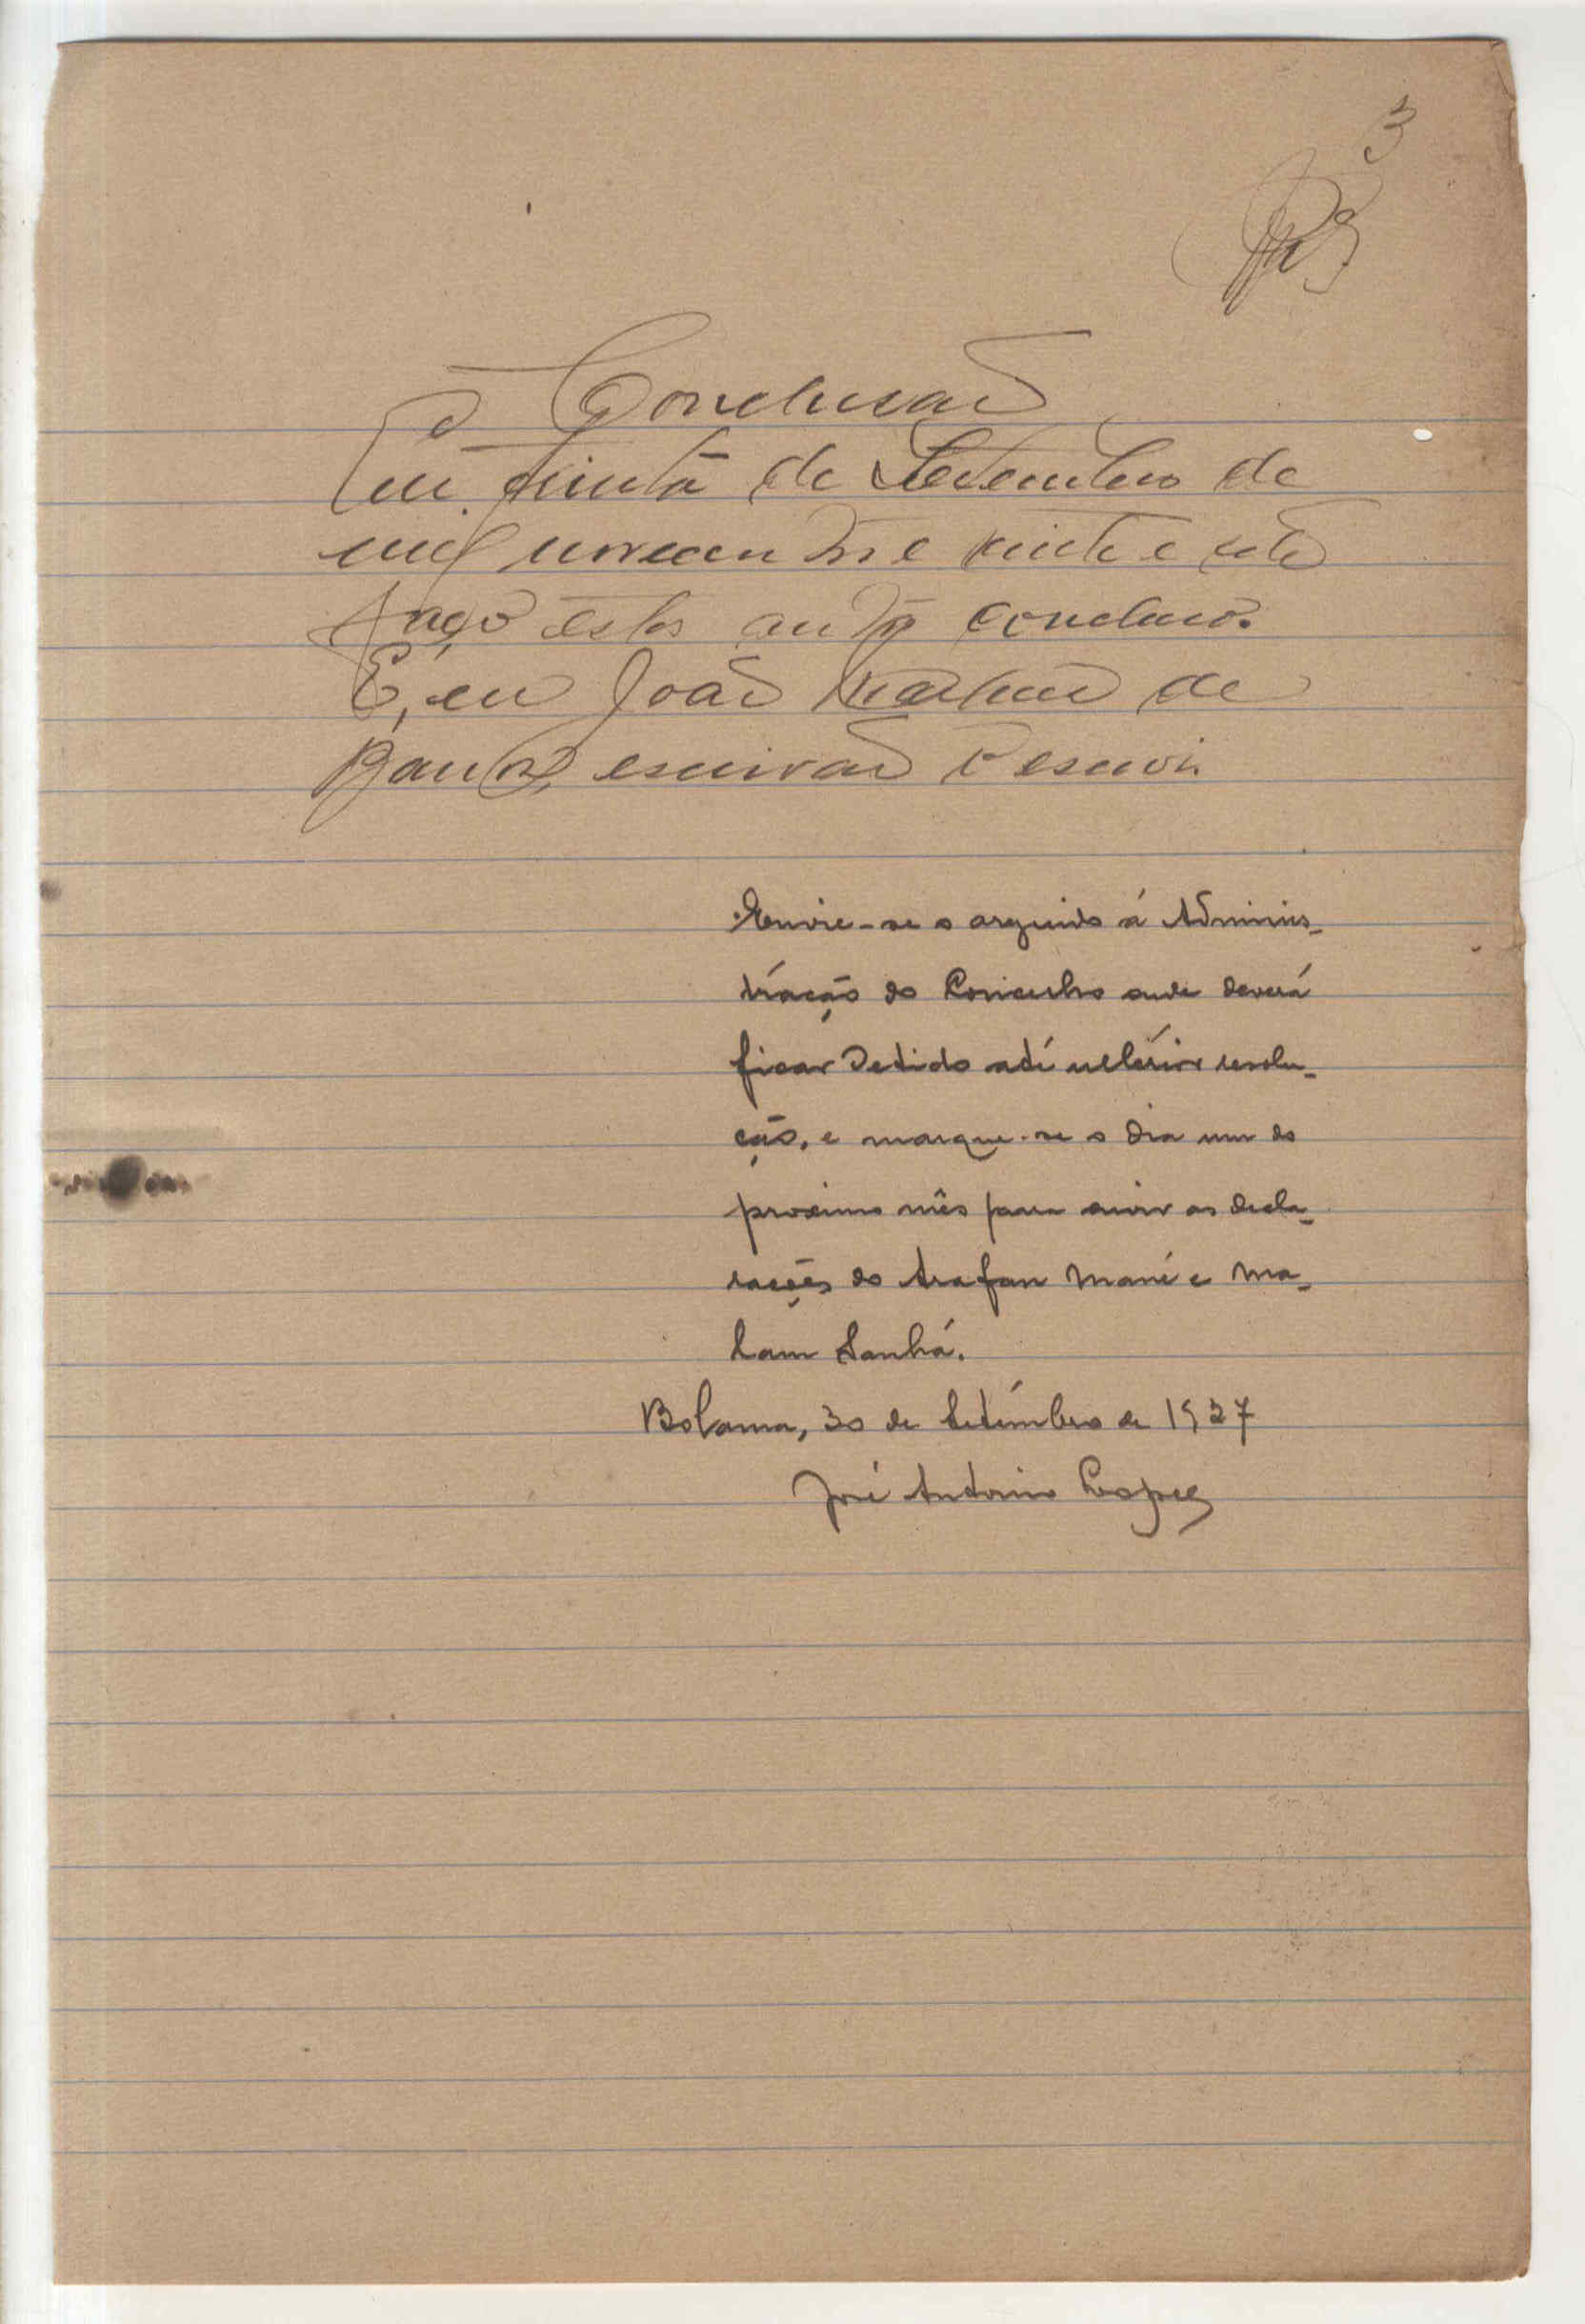 3
Conclusão
Em trinta de Setembro de
mil novecentos e vinte e sete
faço estes autos conclusos.
E, eu João de
escrivão o escrevi.
Envie-se o arguido á Adminis-
tração do Concelho onde deverá
ficar detido até ulterior resolu-
ção, e marque-se o dia um do
proximo mês para ouvir as decla-
rações do Arafan Mané e Ma-
lam Sanhá.
Bolama, 30 de Setembro de 1927
José Antonio Lopes